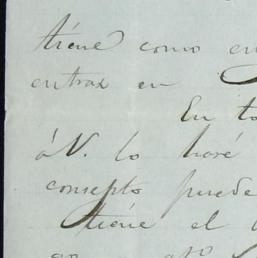 tiene como en
entrar en
En to
á V. lo haré
consepto puede
tiene el